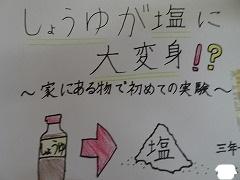 しょうゆが塩に
大変身!?
～家にある物で初めての実験～
しょうゆ
塩
三年